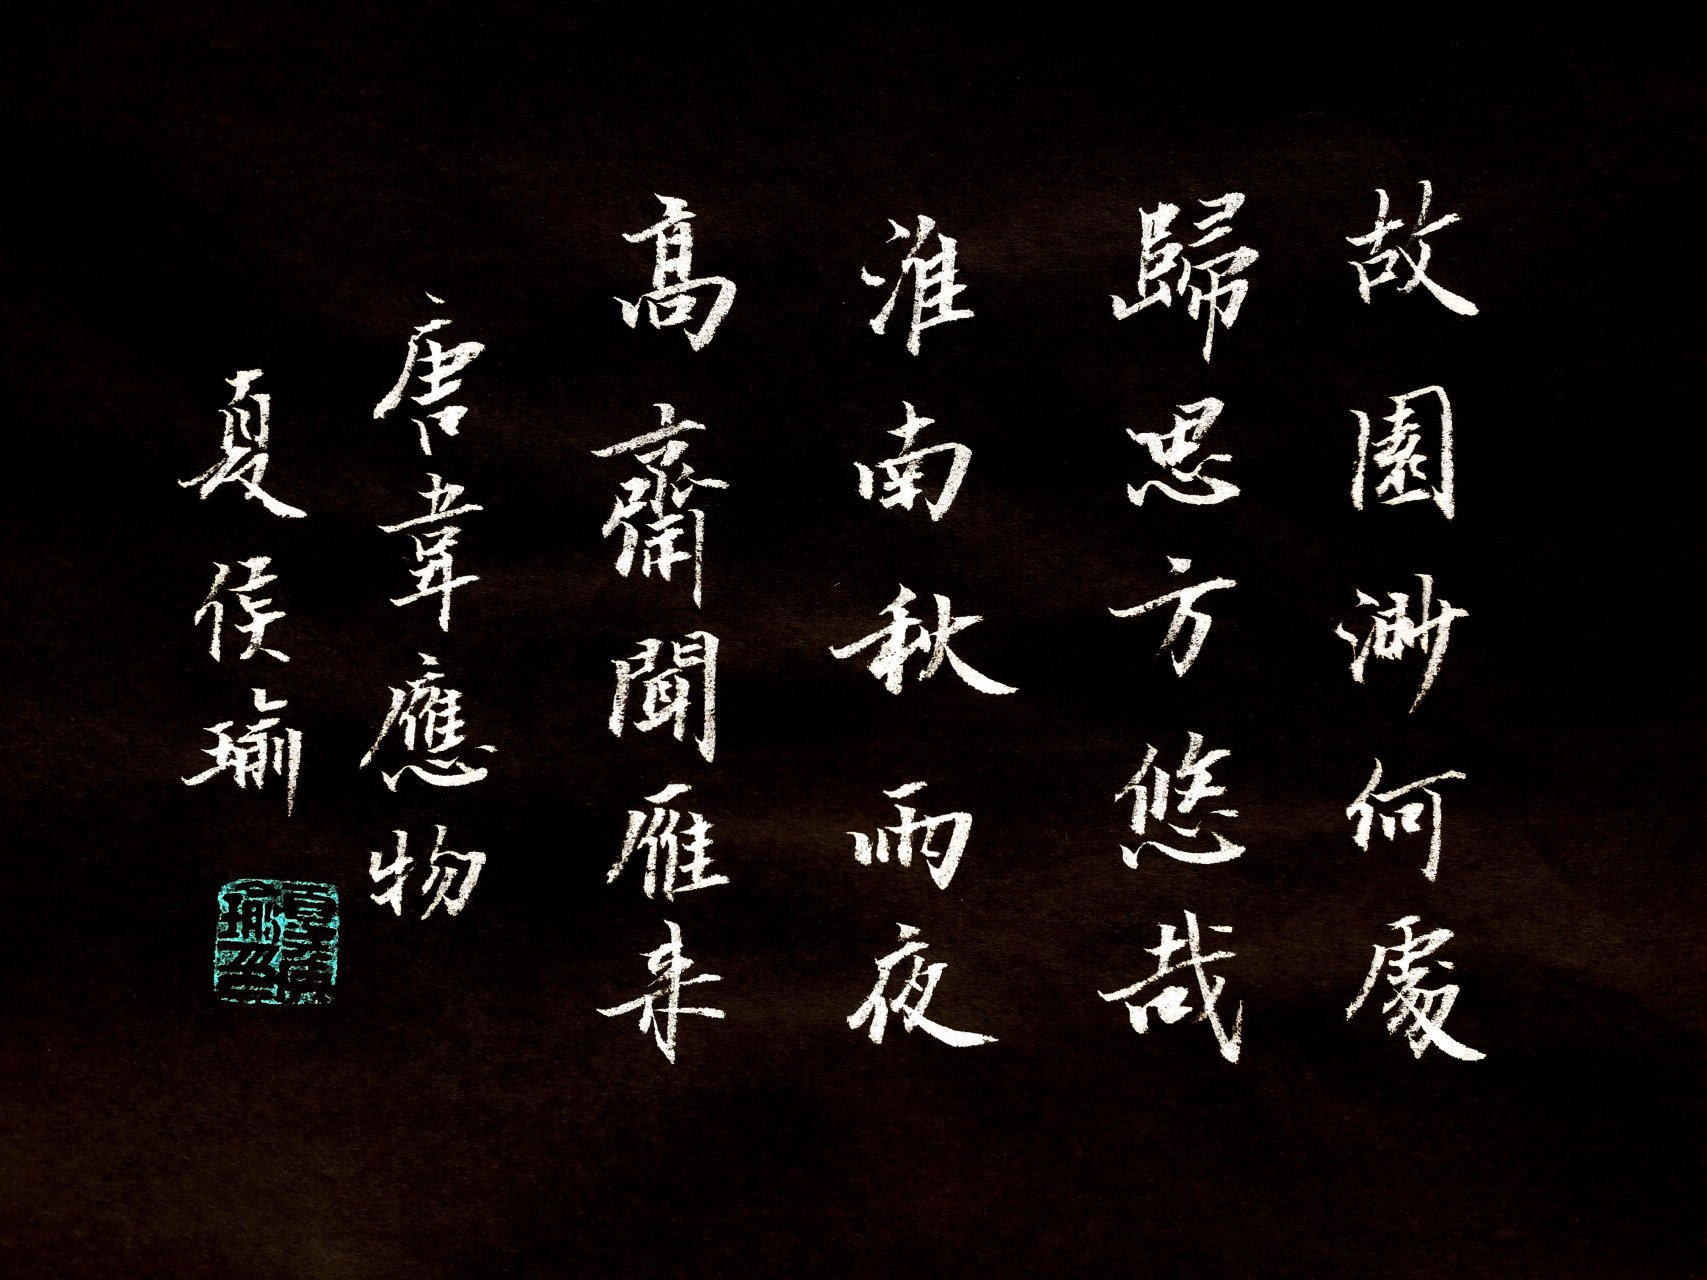 故園渺何處
歸思方悠哉
淮南秋雨夜
髙齋聞雁来
唐韋應物
夏侯瑜